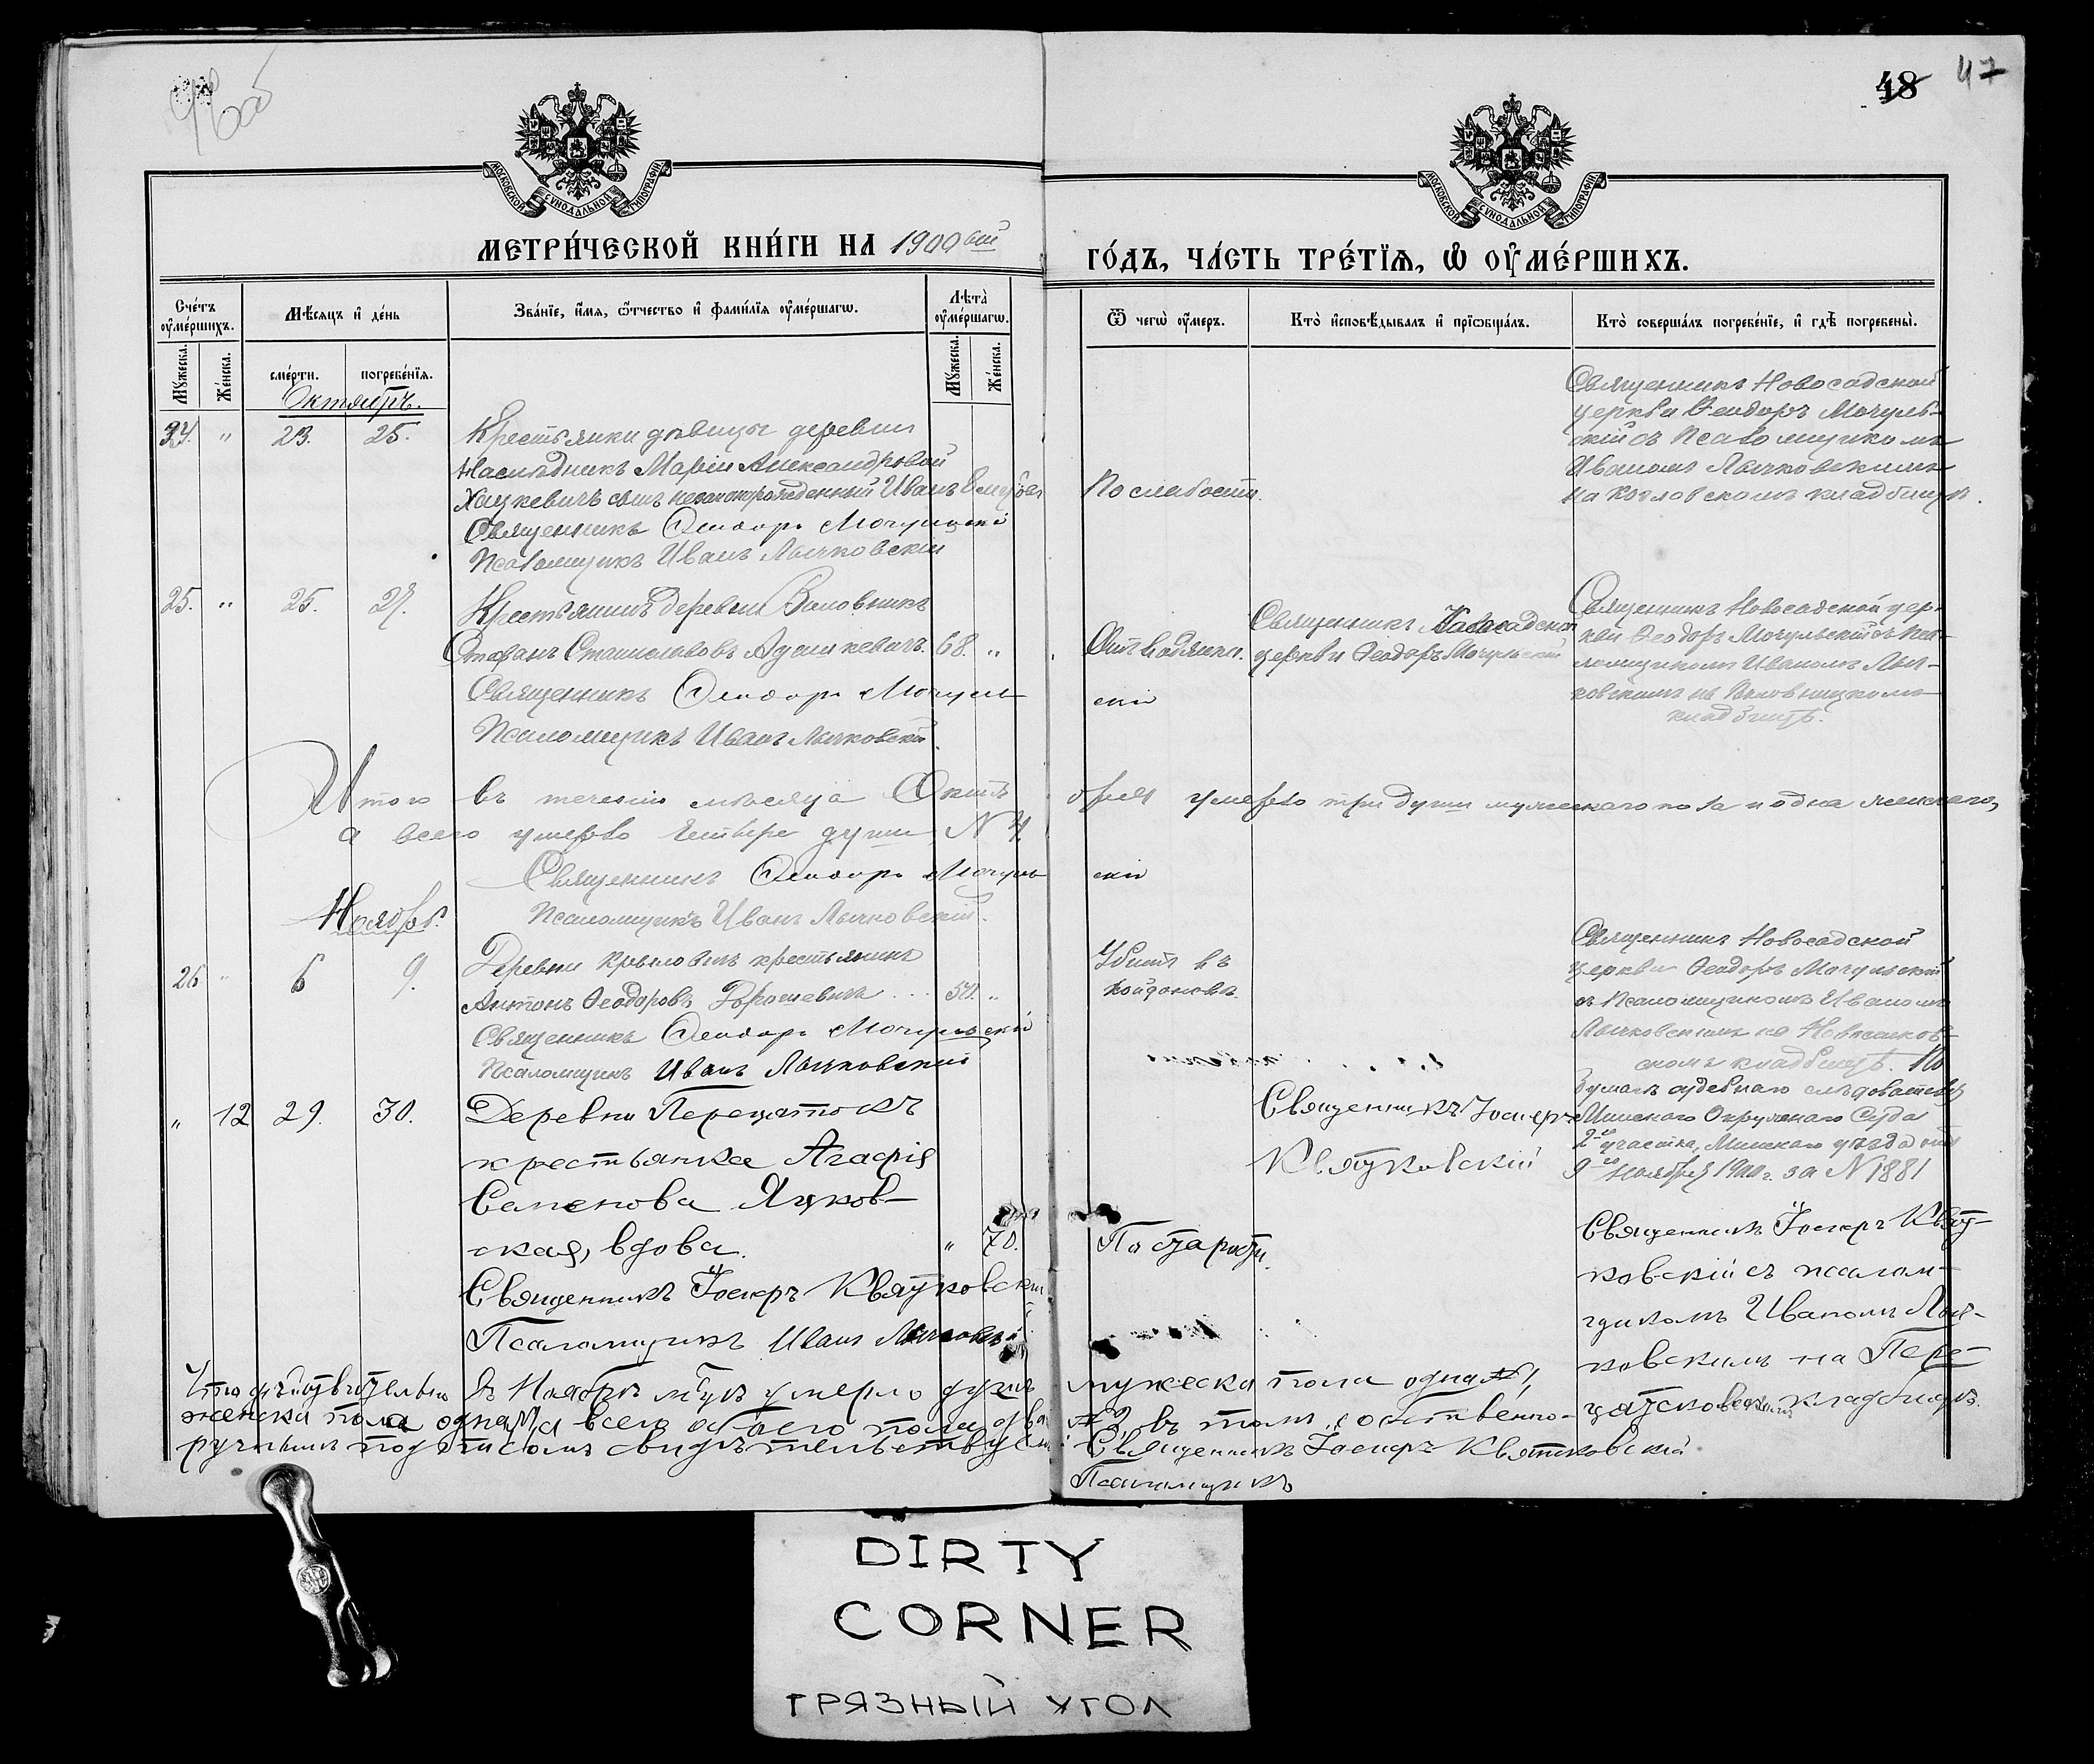 48 47
МОСКОВСКОЙ СѴНОДАЛЬНОЙ ТИПОГРАФІИ
МОСКОВСКОЙ СѴНОДАЛЬНОЙ ТИПОГРАФІИ
МЕТРИ́ЧЕСКОЙ КНИ́ГИ НА 1900 ый
ГО́ДЪ, ЧА́СТЬ ТРЕ́ТІѦ, Ѡ ОУ҆МЕ́РШИХЪ.
Сче́тъ оу҆ме́ршихъ.
Мꙋ́жеска.
Же́нска.
Мѣ́сяцъ и҆ де́нь
сме́рти.
погребе́нїѧ.
Зва́нїе, и҆́мѧ, ѻ҆́тчество и҆ фами́лїѧ оу҆ме́ршагѡ.
Лѣта̀ оу҆ме́ршагѡ.
Мꙋ́жеска.
Же́нска.
Ѿ чегѡ̀ оу҆́меръ.
Кто̀ и҆сповѣ́дывалъ и҆ прїѡбща́лъ.
Кто̀ соверша́лъ погребе́нїе, и҆ гдѣ̀ погребены̀.
Октябрь.
24. " 23. 25.
Крестьянки девицы деревни
Наследникъ Маріи Александровой
Хацкевичъ сынъ незаконорожденный Иванъ
Священникъ Ѳеодоръ Мочульскій
Псаломщикъ Иванъ Лычковскій
По слабости.
Священникъ Новосадской
церкви Ѳеодоръ Мочуль-
скій съ псаломщикомъ
Иваномъ Лычковскимъ
на кладбищѣ.
25. " 25. 27.
Крестьянинъ деревни
Стефанъ Станиславовъ Адашкевичъ. 68. "
Священникъ Ѳеодоръ Мочуль
скій
Псаломщикъ Иванъ Лычковскій.
Отъ водянки.
Священникъ Новосадской
церкви Ѳеодоръ Мочульскій
Священникъ Новосадской цер-
кви Ѳеодоръ Мочульскій съ пса-
ломщикомъ Иваномъ Лыч-
ковскимъ на
кладбищѣ.
Итого въ теченіи мѣсяца Октя бря умерло три души мужескаго пола и одна женскаго,
а всего умерло четыре души, N 4.
Священникъ Ѳеодоръ Мочуль скій
Псаломщикъ Иванъ Лычковскій.
Ноябрь.
26 " 6 9.
Деревни крестьянинъ
Антонъ Ѳеодоровъ
Священникъ Ѳеодоръ Мочульскій
Псаломщикъ Иванъ Лычковскій
Убитъ въ
Койдановѣ.
Священникъ Новосадской
церкви Ѳеодоръ Мочульскій
съ псаломщикомъ Иваномъ
Лычковскимъ на
скомъ кладбищѣ. По
бумагѣ судебнаго слѣдователя
Минскаго Окружнаго Суда
2го участка, Минскаго уѣзда отъ
9го Ноября 1900 г. за N 1881
" 12 29. 30.
Деревни Перецятокъ
крестьянка Агафія
Семенова Яцков-
ская, вдова. " 70.
Священникъ Іосифъ Квятковскій
Псаломщикъ Иванъ Лычковскій
По старости.
Священникъ Іосифъ
Квятковскій
Священникъ Іосифъ Квят-
ковскій съ псалом-
щикомъ Иваномъ Лыч-
ковскимъ на Пере-
цятковскомъ кладбищѣ.
Что дѣйствительно въ Ноябрѣ мѣсяцѣ умерло душъ мужеска пола одна №1,
женска пола одна №1, а всего обоего пола два №2, въ томъ собственно-
ручнымъ подписомъ свидѣтельствуемъ: Священникъ Іосифъ Квятковскій
Псаломщикъ
DIRTY
CORNER
ГРЯЗНЫЙ УГОЛ